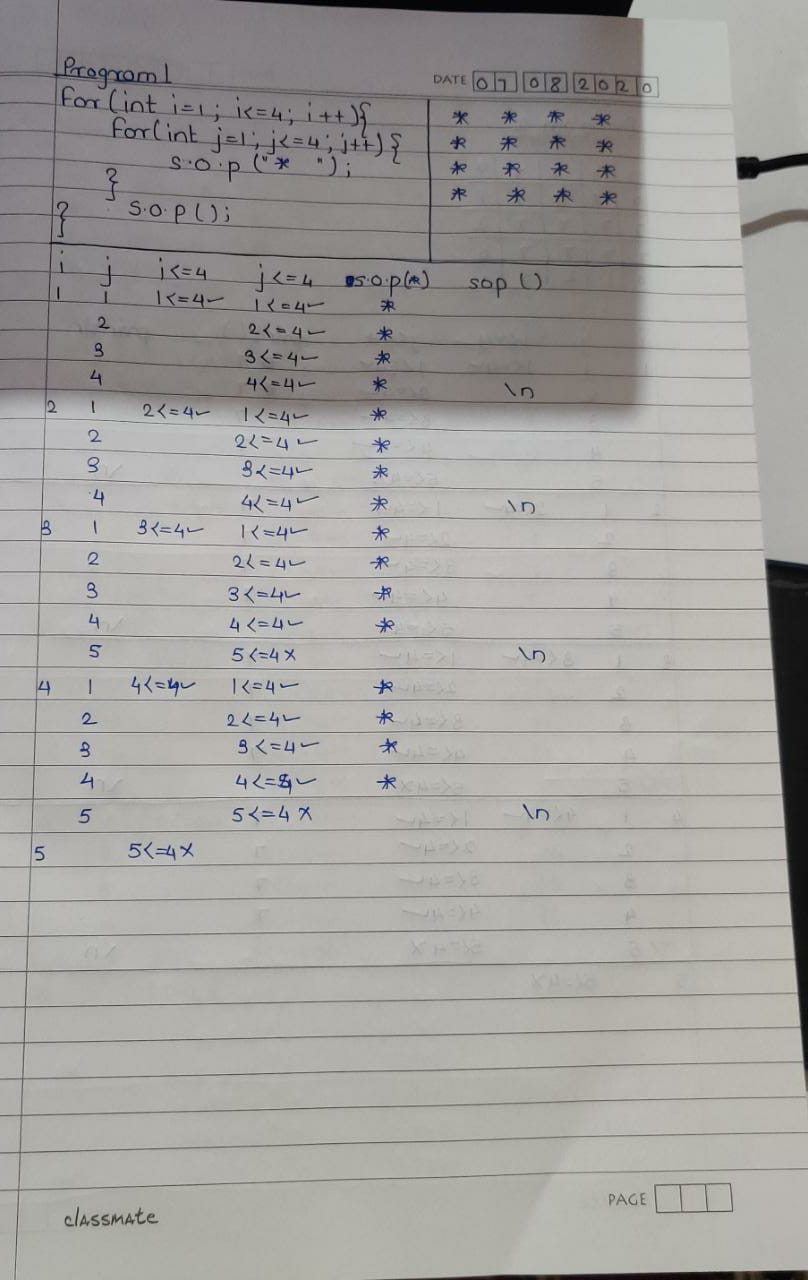 Program 1
DATE 07 08 2020
for(int i=1; i<=4; i++){
for(int j=1; j<=4; j++){
s.o.p ("* ");
}
s.o.p();
}
* * * *
* * * *
* * * *
* * * *
i j i<=4 j<=4 s.o.p(*) sop ()
1 1 1<=4✓ 1<=4✓ *
2 2<=4✓ *
3 3<=4✓ *
4 4<=4✓ * \n
2 1 2<=4✓ 1<=4✓ *
2 2<=4✓ *
3 3<=4✓ *
4 4<=4✓ * \n
3 1 3<=4✓ 1<=4✓ *
2 2<=4✓ *
3 3<=4✓ *
4 4<=4✓ *
5 5<=4 x \n
4 1 4<=4✓ 1<=4✓ *
2 2<=4✓ *
3 3<=4✓ *
4 4<=4✓ *
5 5<=4 x \n
5 5<=4 x
classmate
PAGE